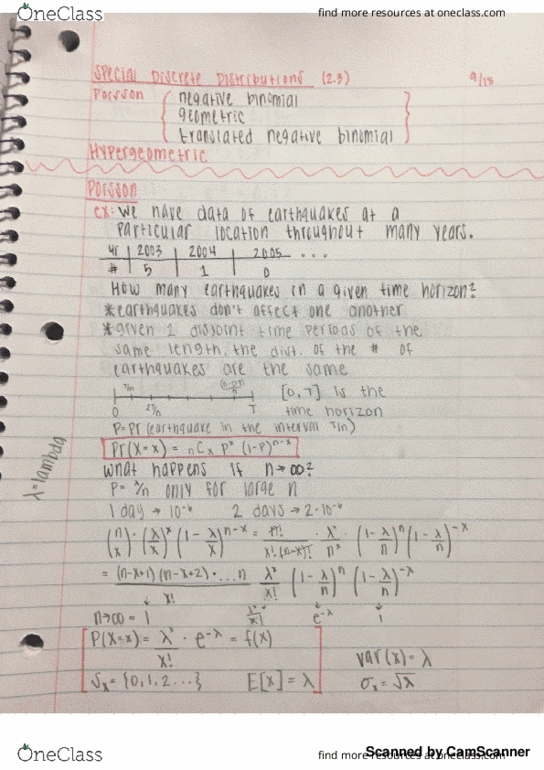 OneClass find more resources at oneclass.com
Special Discrete Distributions (2.3) 9/18
Poisson { negative binomial
geometric
translated negative binomial }
Hypergeometric
Poisson
ex: We have data of earthquakes at a
particular location throughout many years.
yr | 2003 | 2004 | 2005 ...
# | 5 | 1 | 0
How many earthquakes in a given time horizon?
*earthquakes don't affect one another
*given 2 disjoint time periods of the
same length, the dist. of the # of
earthquakes are the same
T/n
0 2T/n T [0,T] is the
time horizon
P=Pr(earthquake in the interval T/n)
Pr(X=x) = nCx pˣ (1-p)ⁿ⁻ˣ
What happens if n→∞?
λ=lambda
P= λ/n only for large n
1 day → 10⁻⁶ 2 days → 2·10⁻⁶
(n x)·(λ/x)ˣ(1-λ/x)ⁿ⁻ˣ = n!/x!(n-x)! · λˣ/nˣ · (1-λ/n)ⁿ(1-λ/n)⁻ˣ
= (n-x+1)(n-x+2)·...n/x! λˣ/x! (1-λ/n)ⁿ (1-λ/n)⁻ˣ
n→∞ = 1 λˣ/x! e⁻λ 1
P(X=x) = λˣ/x! · e⁻λ = f(x)
var(x) = λ
Sx = {0,1,2...} E[x] = λ σx = √λ
Scanned by CamScanner
OneClass find more resources at oneclass.com